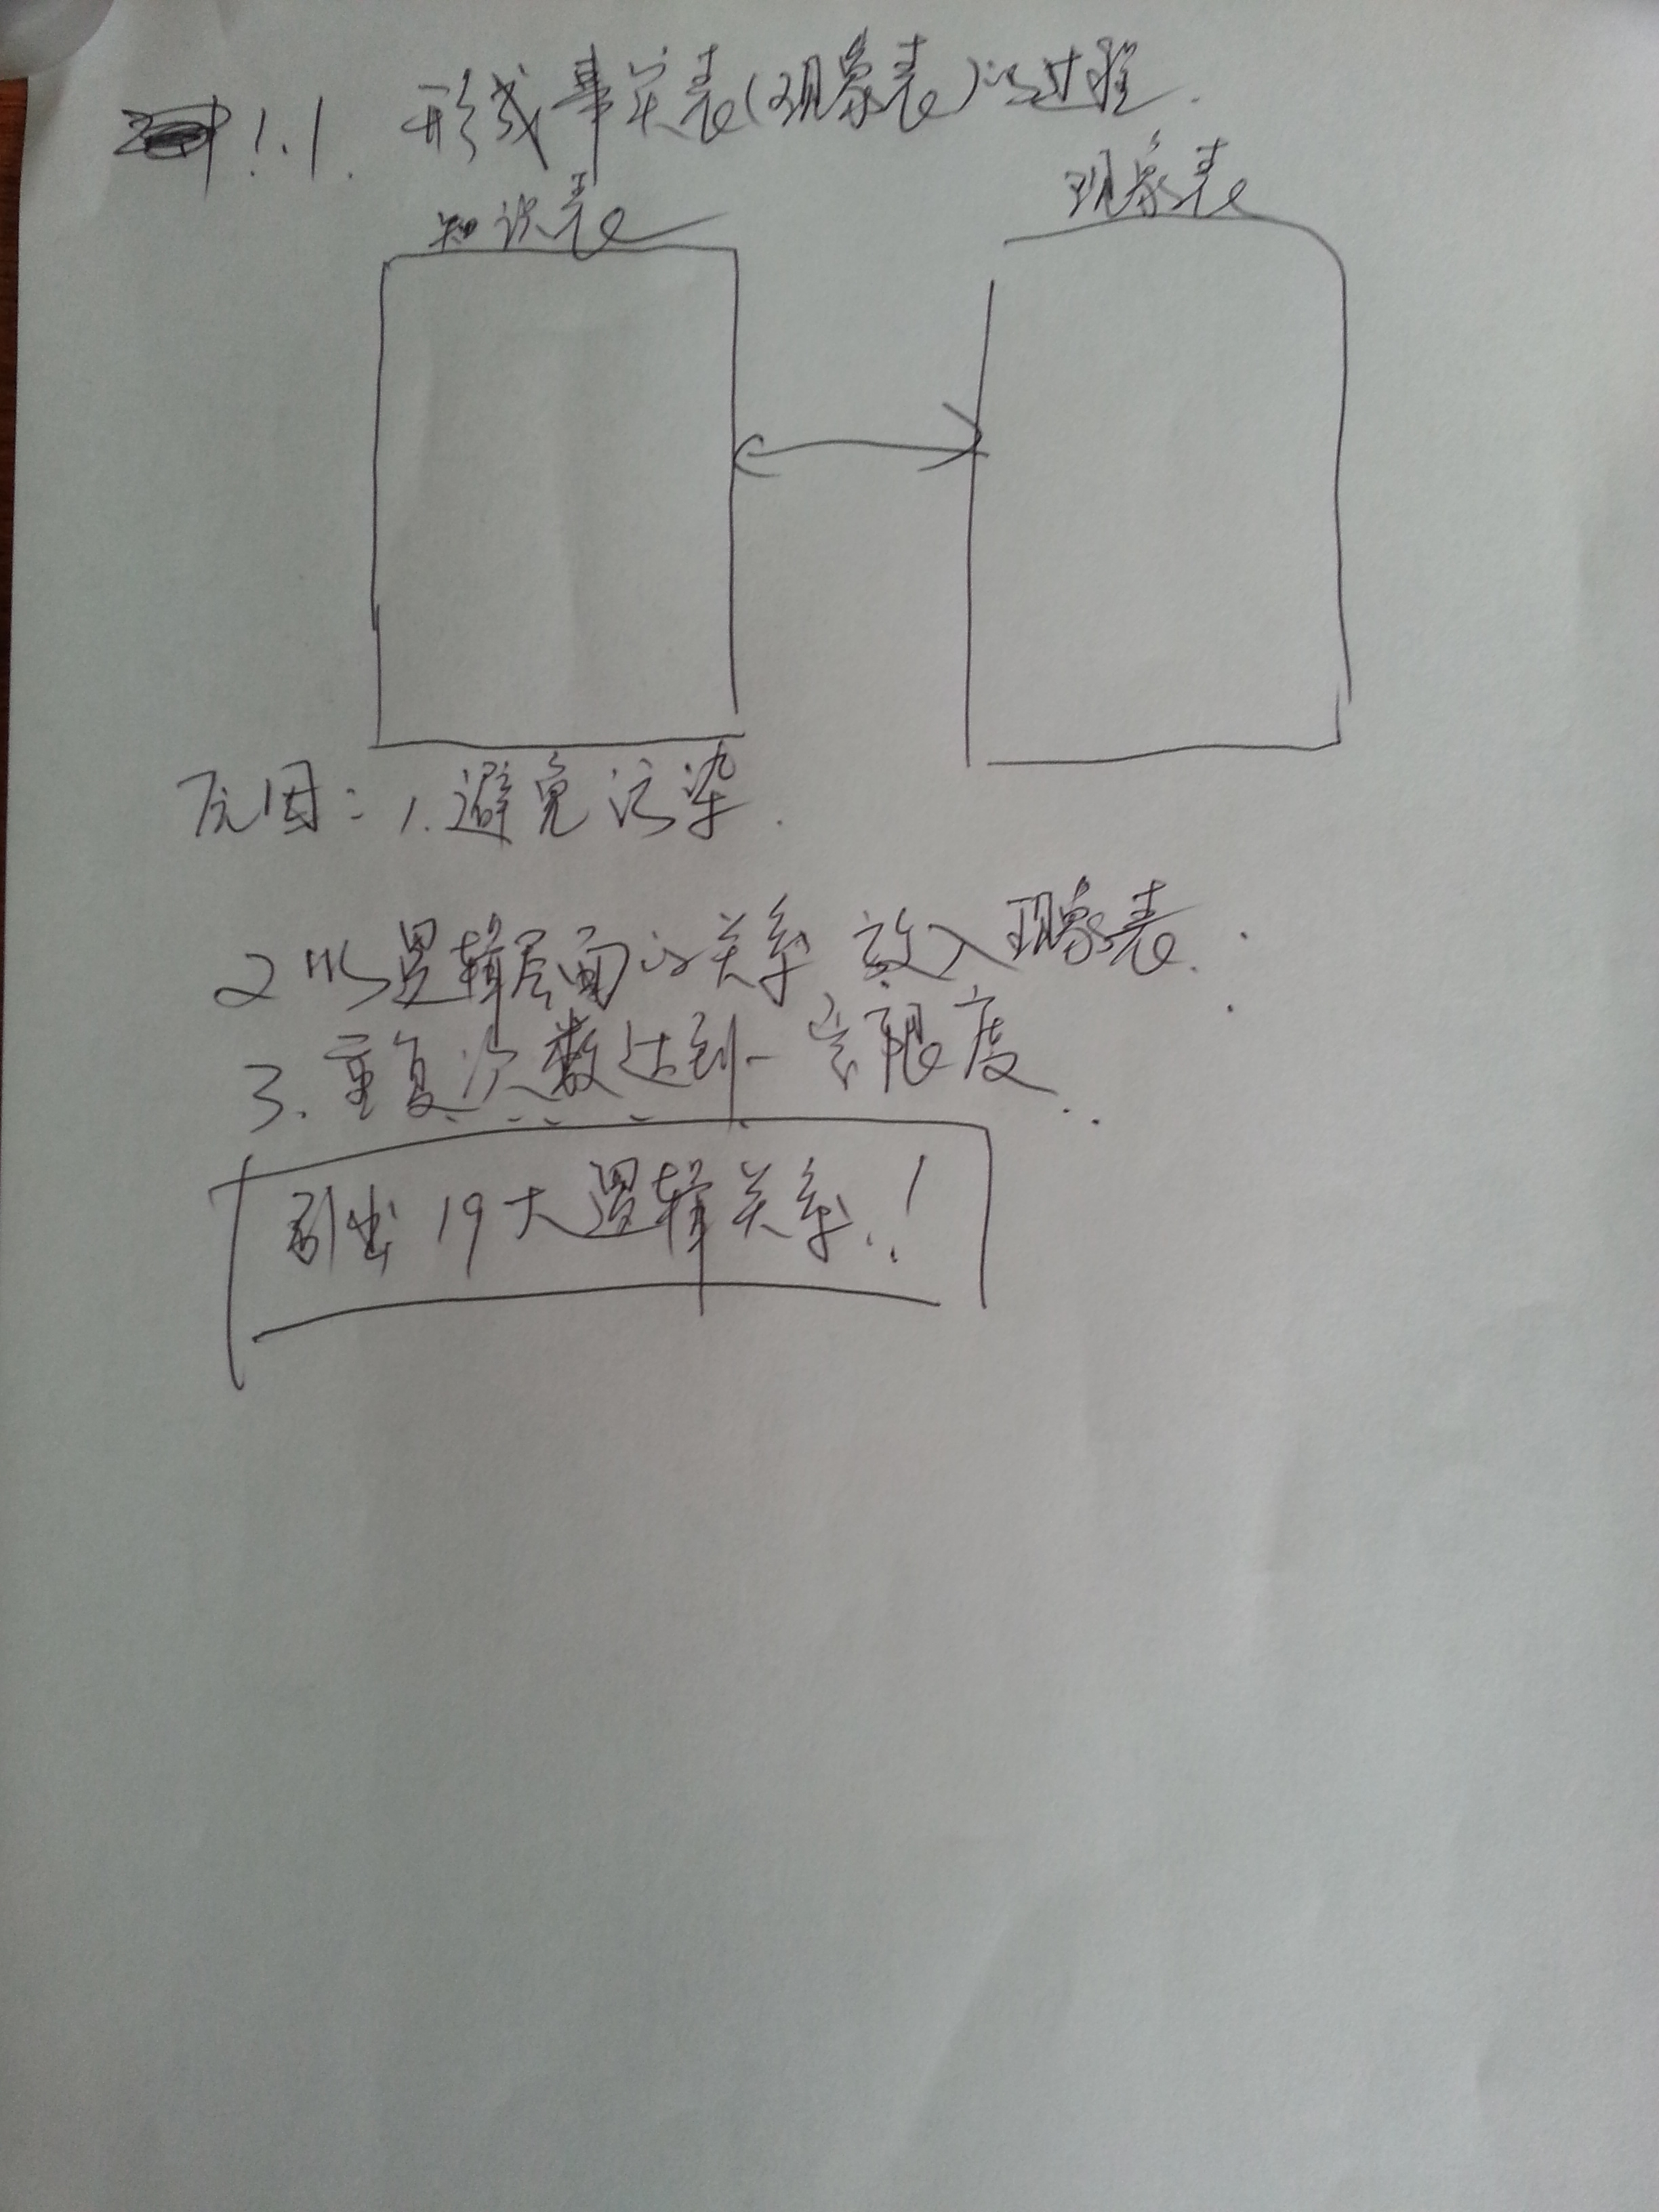 1.1. 形成事实表(现象表)的过程.
知识表
现象表
原因: 1. 避免污染.
2 将逻辑层面的关系 放入现象表.
3. 重复次数达到一定限度..
引出 19大逻辑关系.!